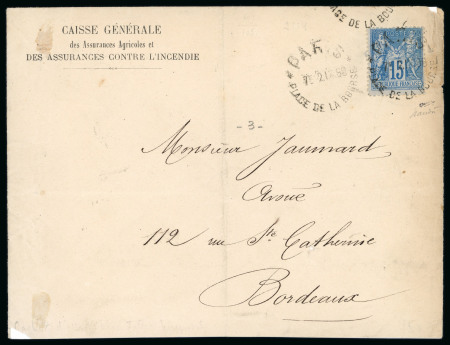 CAISSE GÉNÉRALE
des Assurances Agricoles et
DES ASSURANCES CONTRE L'INCENDIE
PLACE DE LA BOURSE
PARIS
PLACE DE LA BOURSE
15
- 3 -
Monsieur Jaumard
Avoué
112 rue Ste Catherine
Bordeaux